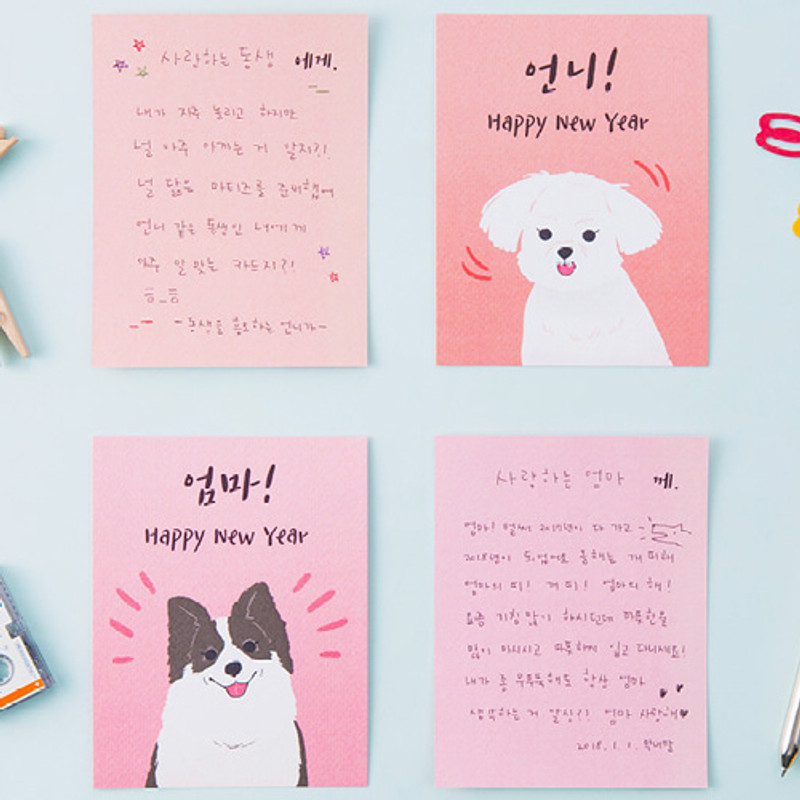 사랑하는 동생 에게.
내가 자주 놀리고 하지만
널 아주 아끼는 거 알지?!
널 닮은 마티즈를 준비했어
언니 같은 동생인 너에게
아주 알맞는 카드지?!
ㅎ_ㅎ
- 동생을 좋아하는 언니가-
언니!
Happy New Year
엄마!
Happy New Year
사랑하는 엄마 께.
엄마! 벌써 2017년이 다 가고
2018년이 되었어요 올해는 개띠해
엄마의 띠! 개띠! 엄마의 해!
요즘 기침 많이 하시던데 따뜻한물
많이 마시시고 따뜻하게 입고 다니세요!
내가 좀 무뚝뚝해도 항상 엄마
생각하는 거 알징?! 엄마 사랑해♥
2018. 1. 1.